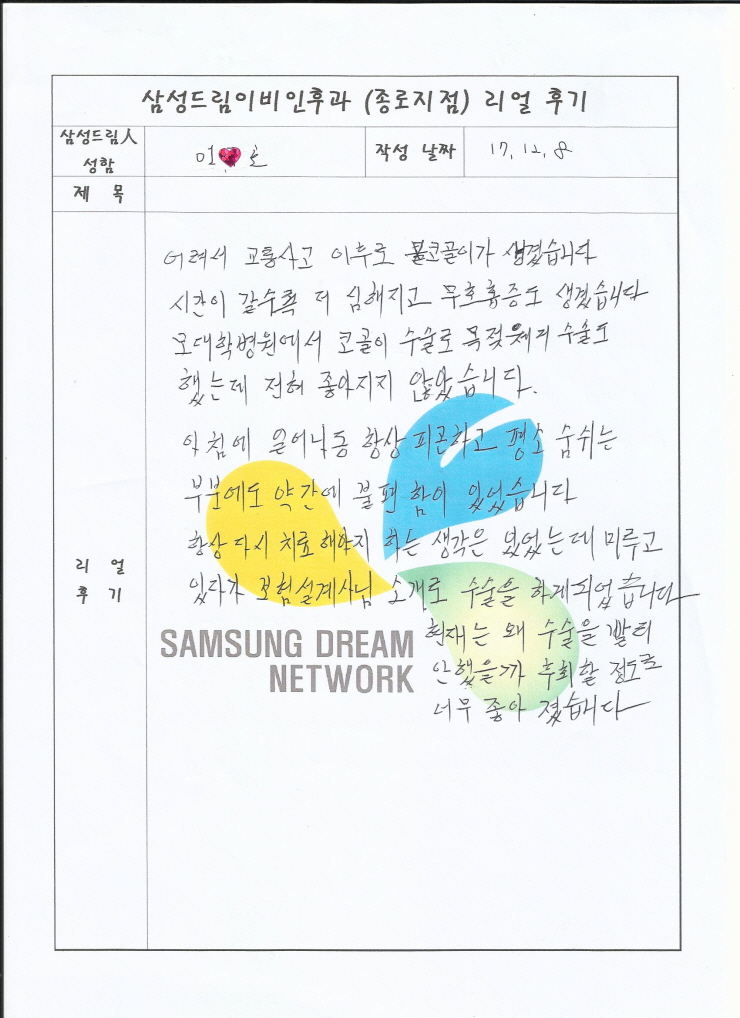 삼성드림이비인후과 (종로지점) 리얼 후기
삼성드림人 성함
미 호
작성 날짜
17, 12, 8
제 목
리 얼
후 기
어려서 교통사고 이후로 콧골이가 생겼습니다
시간이 갈수록 더 심해지고 무호흡증도 생겼습니다
모대학병원에서 코골이 수술로 목젖 수술도
했는데 전혀 좋아지지 않았습니다.
아침에 일어나도 항상 피곤하고 평소 숨쉬는
부분에도 약간에 불편함이 있었습니다
항상 다시 치료해야지 하는 생각은 있었는데 미루고
있다가 보험설계사님 소개로 수술을 하게되었습니다
현재는 왜 수술을 빨리
안했을까 후회할 정도로
너무 좋아졌습니다
SAMSUNG DREAM
NETWORK